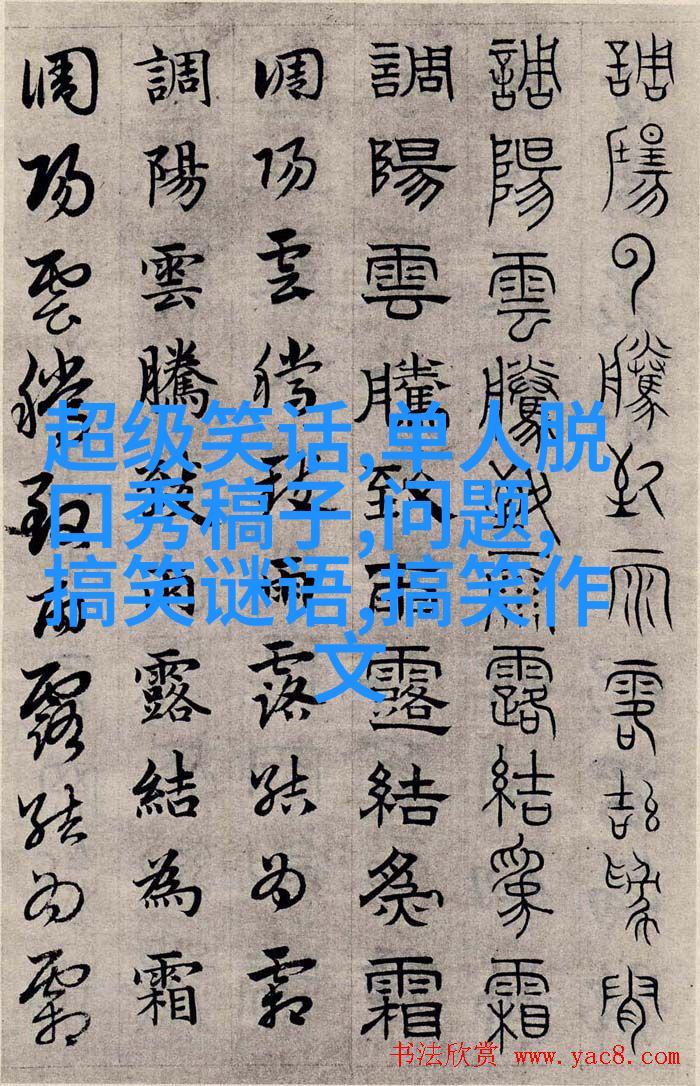 調陽雲騰致雨露結為霜
調陽雲騰致雨露結為霜
調陽雲騰致雨露結為霜
調陽雲騰致雨露結為霜
調陽雲騰致雨露結為霜
調陽雲騰致雨露結為霜
超级笑话,单人脱
口秀稿子,问题,
搞笑谜语,搞笑作
文
书法欣赏 www.yac8.com